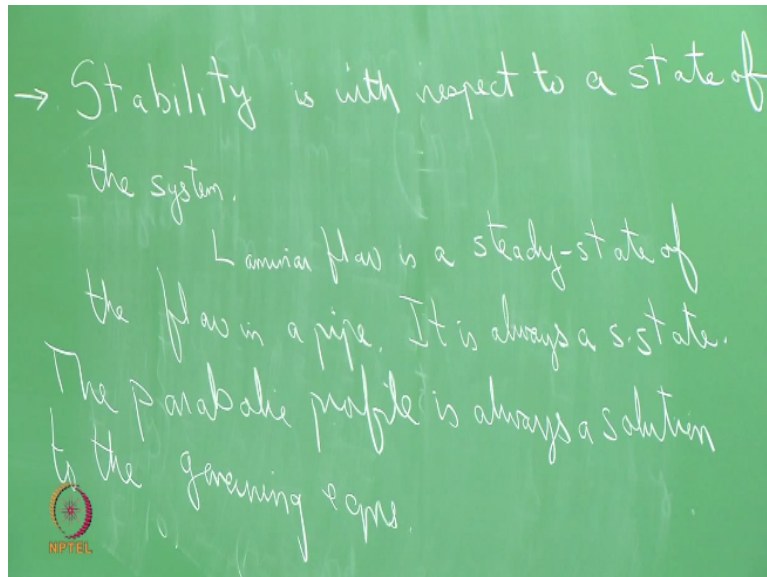 → Stability is with respect to a state of
the system.
Laminar flow is a steady-state of
the flow in a pipe. It is always a s.state.
The parabolic profile is always a solution
to the governing eqns.
NPTEL